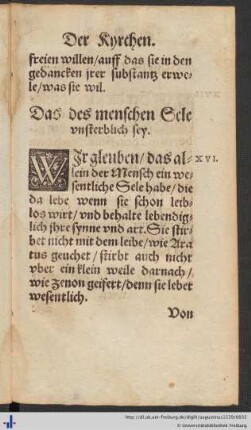 Der Kyrchen.
freien willen/auff das sie in den
gedancken jrer substantz erwe-
le/was sie wil.
Das des menschen Sele
vnsterblich sey.
WIr gleuben/das al- XVI.
lein der Mensch ein we-
sentliche Sele habe/die
da lebe wenn sie schon leib-
los wirt/vnd behalte lebendig-
lich jhre synne vnd art. Sie stir-
bet nicht mit dem leibe/wie Ara
tus geuchet/stirbt auch nicht
vber ein klein weile darnach/
wie Zenon geifert/denn sie lebet
wesentlich.
Von
http://dl.ub.uni-freiburg.de/diglit/augustinus1539/0031
© Universitätsbibliothek Freiburg